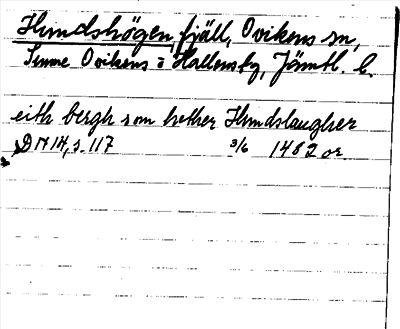 Hundshögen, fjäll, Ovikens sn,
Sunne Ovikens o Hallens tg, Jämtl. l.
eith bergh som hether Hundslaugher
DN 14, s. 117 3/6 1482 or